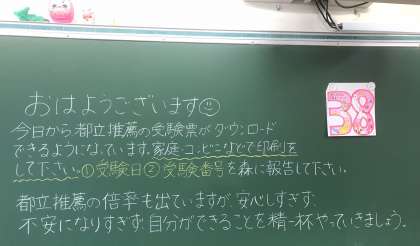 おはようございます
今日から都立推薦の受験票がダウンロード
できるようになっています。家庭・コンビニなどで印刷を
して下さい。①受験日②受験番号を森に報告して下さい。
都立推薦の倍率も出ていますが、安心しすぎず、
不安になりすぎず、自分ができることを精一杯やっていきましょう。
38